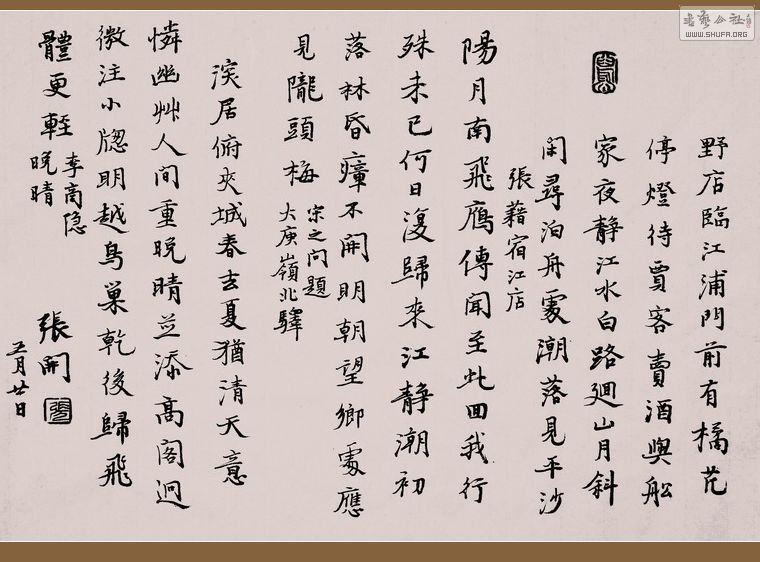 野店臨江浦門前有橘花
停燈待賈客賣酒與舩
家夜靜江水白路廻山月斜
閑尋泊舟處潮落見平沙
張藉宿江店
陽月南飛鴈傳聞至此回我行
殊未已何日復歸來江靜潮初
落林昏瘴不開明朝望鄉處應
見隴頭梅
宋之問題
大庾嶺北驛
深居俯夾城春去夏猶清天意
憐幽艸人間重晚晴並添高閣迥
微注小牕明越鳥巢乾後歸飛
體更輕
李商隱
晚晴
張開
五月廿日
書藝公社
WWW.SHUFA.ORG